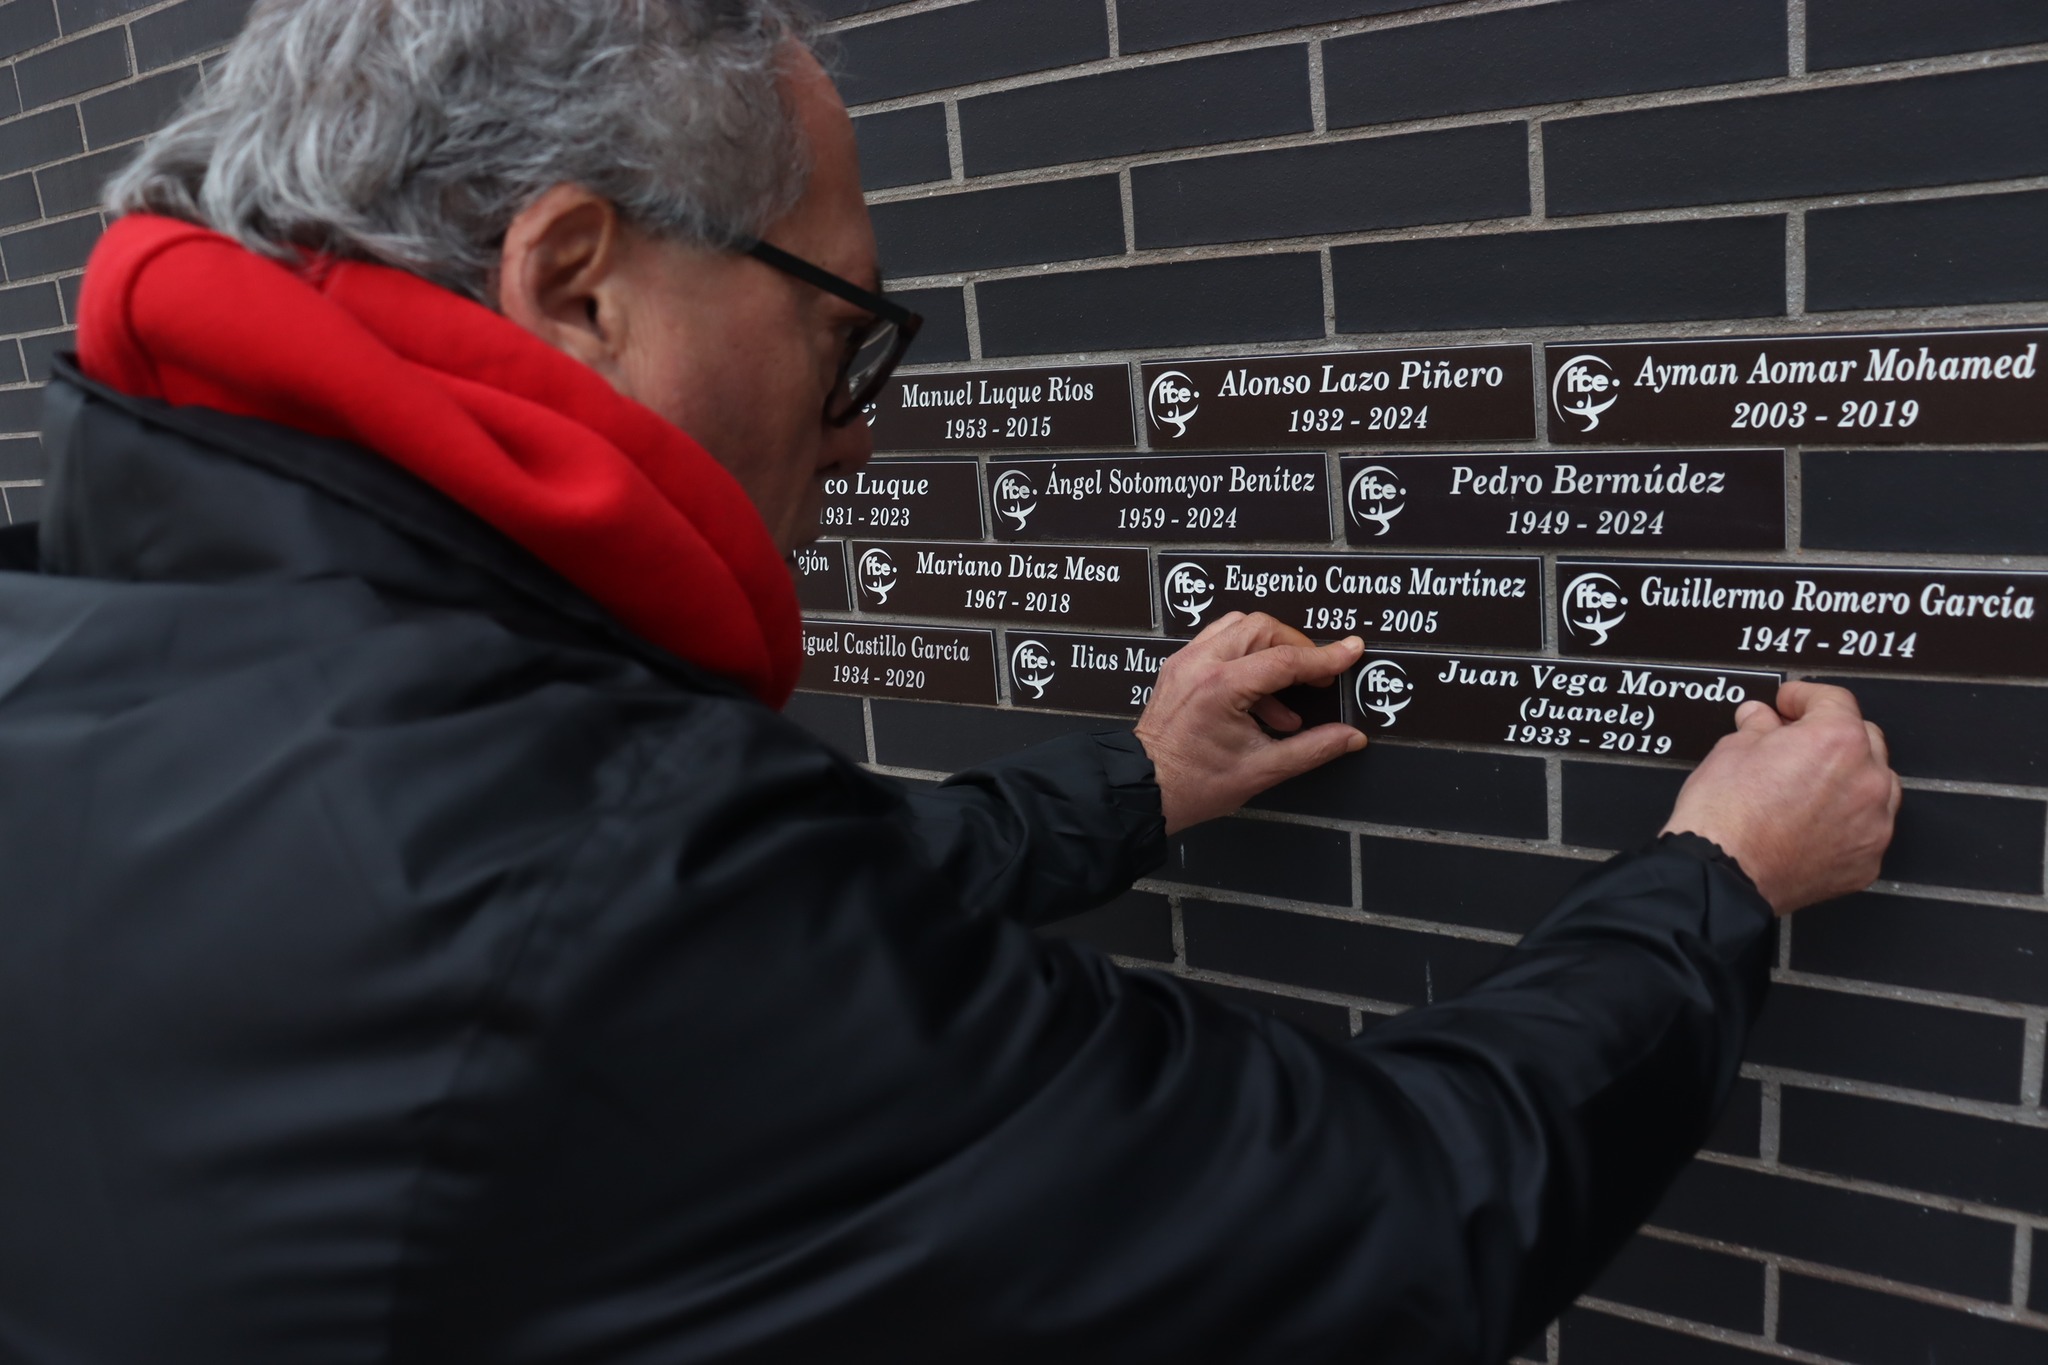 Manuel Luque Ríos
1953 - 2015
ffce.
Alonso Lazo Piñero
1932 - 2024
ffce.
Ayman Aomar Mohamed
2003 - 2019
Luque
1931 - 2023
ffce.
Ángel Sotomayor Benítez
1959 - 2024
ffce.
Pedro Bermúdez
1949 - 2024
ffce.
Mariano Díaz Mesa
1967 - 2018
ffce.
Eugenio Canas Martínez
1935 - 2005
ffce.
Guillermo Romero García
1947 - 2014
Castillo García
1934 - 2020
ffce.
Ilias
ffce.
Juan Vega Morodo
(Juanele)
1933 - 2019